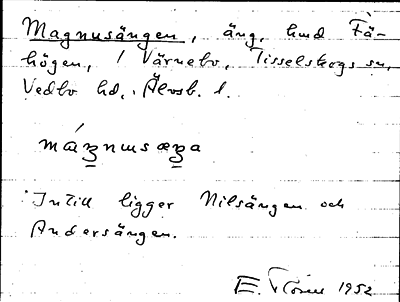 Magnusängen, äng, hmd Få-
högen, 1 Värnebo, Tisselskogs sn,
Vedbo hd, Älvsb. l.
Intill ligger Nilsängen och
Andersängen.
E. 1952